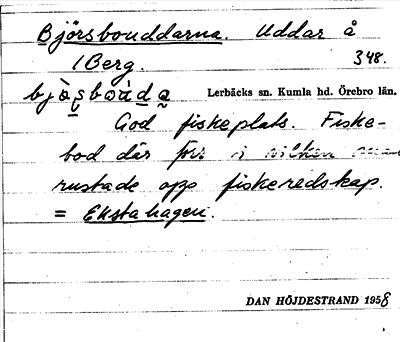 Björsbouddarna. Uddar å
1 Berg. 348.
Lerbäcks sn. Kumla hd. Örebro län.
God fiskeplats. Fiske-
bod där förr i vilken man
rustade opp fiskeredskap.
= Ekstahagen.
DAN HÖJDESTRAND 1958